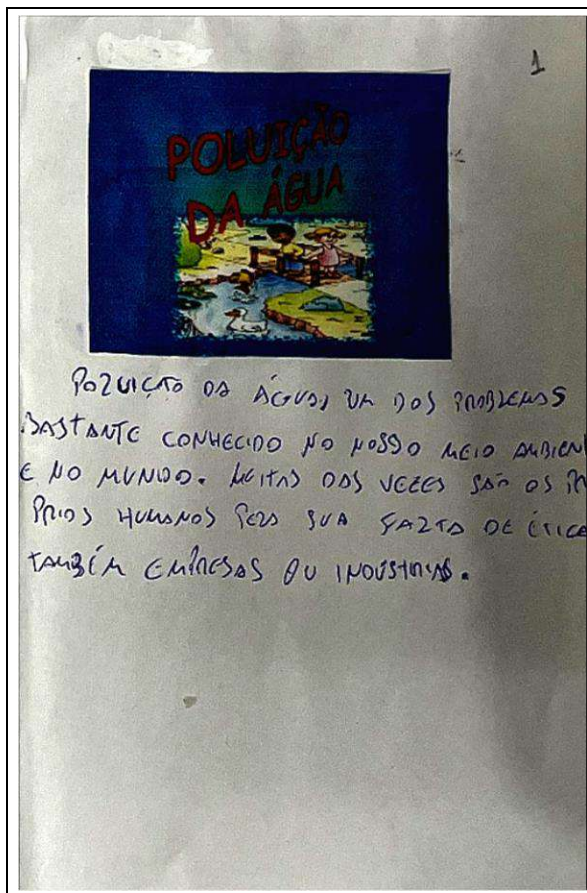 1
POLUIÇÃO
DA ÁGUA
POLUIÇÃO DA ÁGUA, UM DOS PROBLEMAS
BASTANTE CONHECIDO NO NOSSO MEIO AMBIEN
E NO MUNDO. MUITAS DAS VEZES SÃO OS PR
PRIOS HUMANOS PELA SUA FALTA DE ÉTICA
TAMBÉM EMPRESAS OU INDÚSTRIAS.